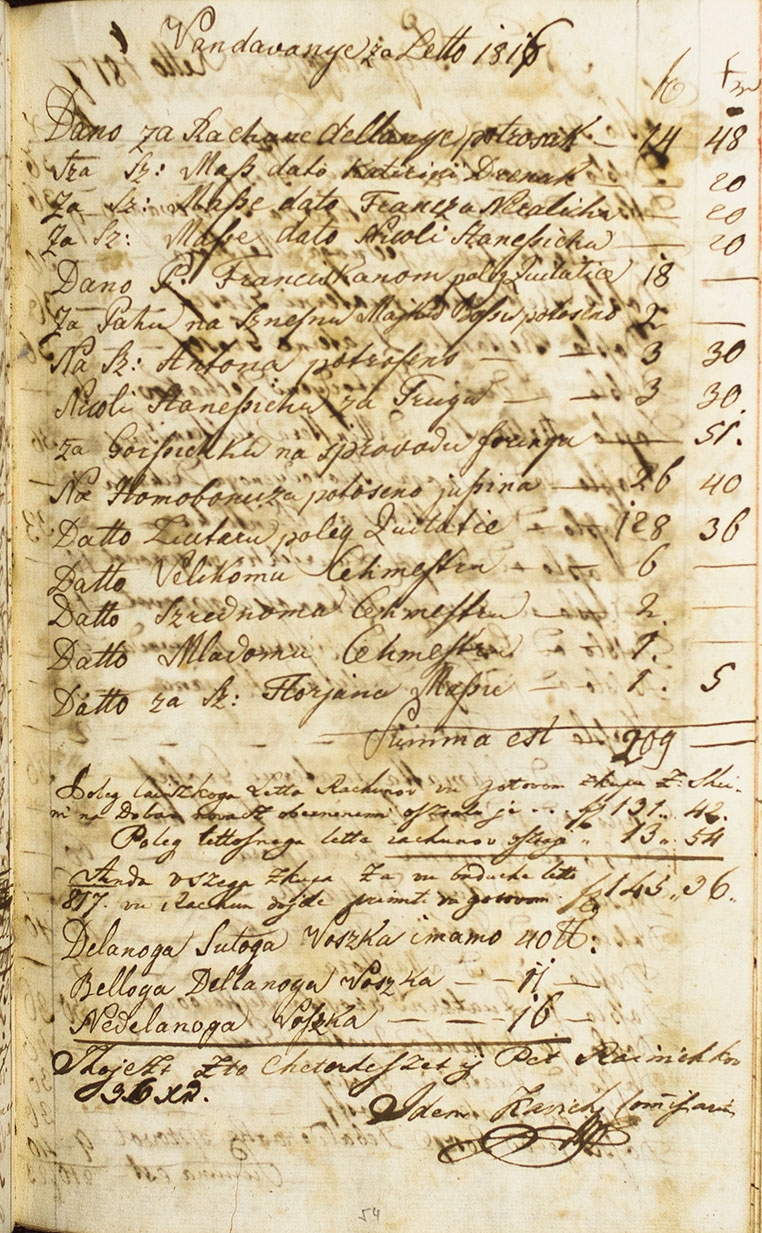 Vandavanye za Letto 1816
f xr
Dano za Rachune dellanye potrosak — 14 48
Sza Sz: Maß dato Katerini Drenak — 20
Za Sz: Maße dato Francza — 20
Za Sz: Maße dato Nicoli Stanessichu — 20
Dano P. Franciskanom poleg Quitatie 18 —
Za Patu na Sznesnu Majke Bosje potoseno 2 —
Na Sz: Antona potroseno — — 3 30
Nicoli Stanessichu za Truga — — 3 30.
za na sprovodu — 51.
Na Homobonusza potoseno jussina — 26 40
Datto poleg Quitatie — — 128 36
Datto Velikomu Cehmestru — — 6 —
Datto Szrednomu Cehmestru — — 2. —
Datto Mladomu Cehmestru — — 1. —
Datto za Sz: Florjana Masse — — 1. 5
Summa est — 209 —
Poleg Letta Rachunov vu gotovom zkupa
na Dobar osztalo je . . . f 131 „ 42.
Poleg lettosnega letta rachunov „ 13 „ 54
Anda vszega zkupa za vu buduche letto
817. vu Rachun dojde primiti vu gotovom f 145 „ 36 „
Delanoga Sutoga Voszka imamo 40 ℔:
Belloga Dellanoga Voszka — — 11 —
Nedelanoga Voszka — — — 16 —
Tojeszt Szto Cheterdeszet y Pet Rainichkov
36 xr.
Idem Comissarius
54